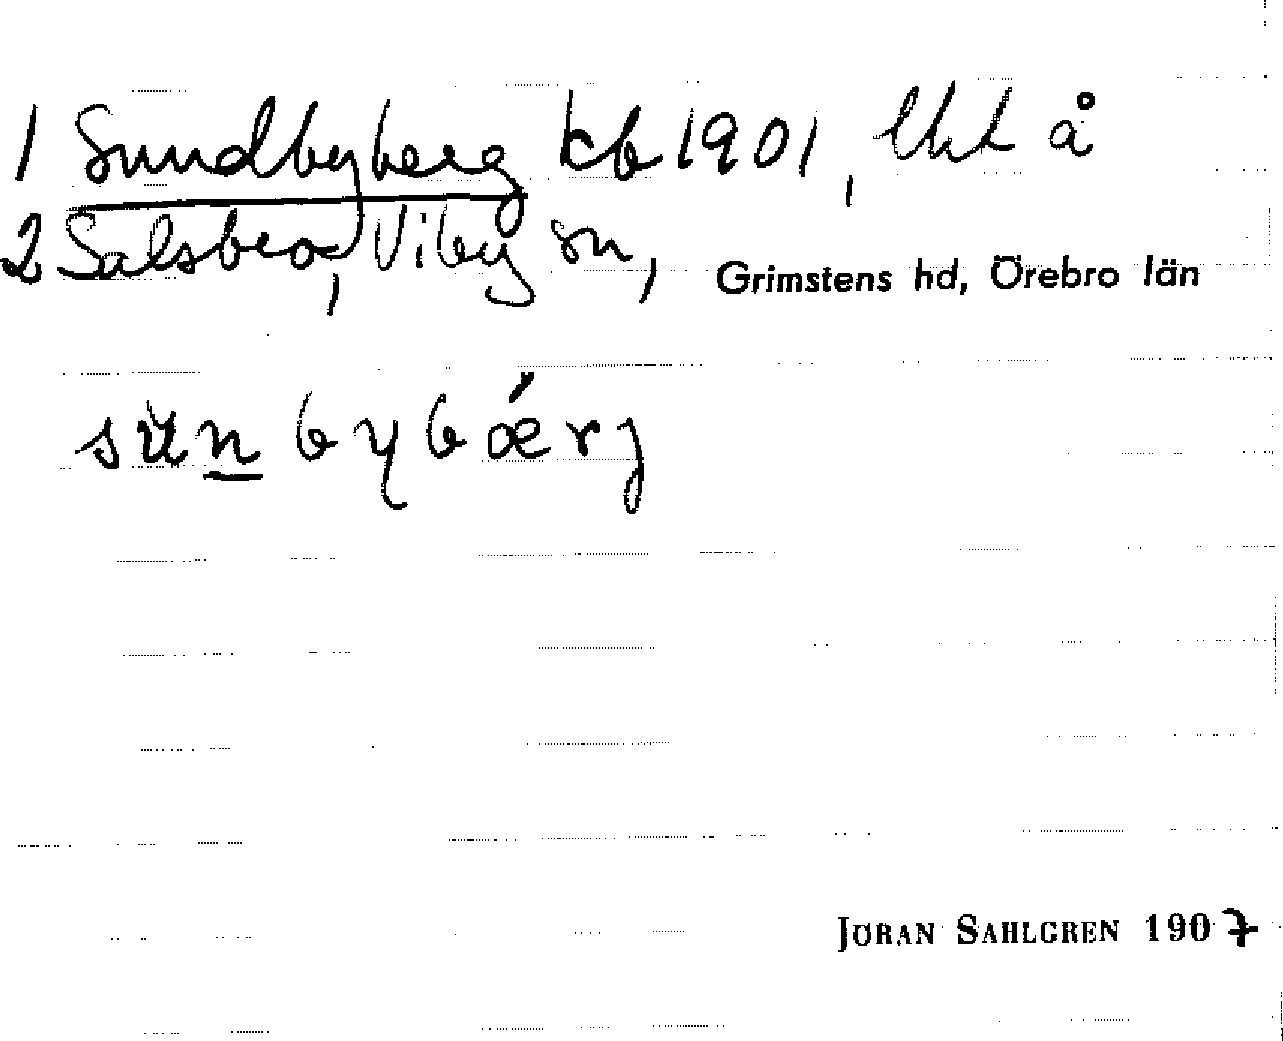 1 Sundbyberg kb 1901, lht å
2 Salsbro, Viby sn, Grimstens hd, Örebro län
sun bybǽrj
JÖRAN SAHLGREN 1907